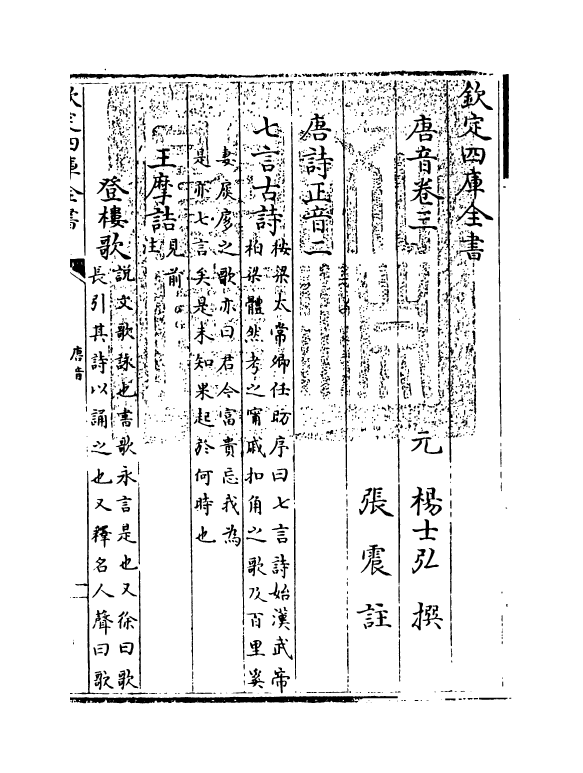 欽定四庫全書
唐音卷三
元 楊士弘 撰
張震 註
唐詩正音二
七言古詩
按梁太常卿任昉序曰七言詩始漢武帝
柏梁體然考之甯戚扣角之歌及百里奚
妻扊扅之歌亦曰君今富貴忘我為
是亦七言矣是未知果起於何時也
王摩詰
見前
註
登樓歌
說文歌詠也書歌永言是也又徐曰歌
長引其詩以誦之也又釋名人聲曰歌
欽定四庫全書
唐音
二